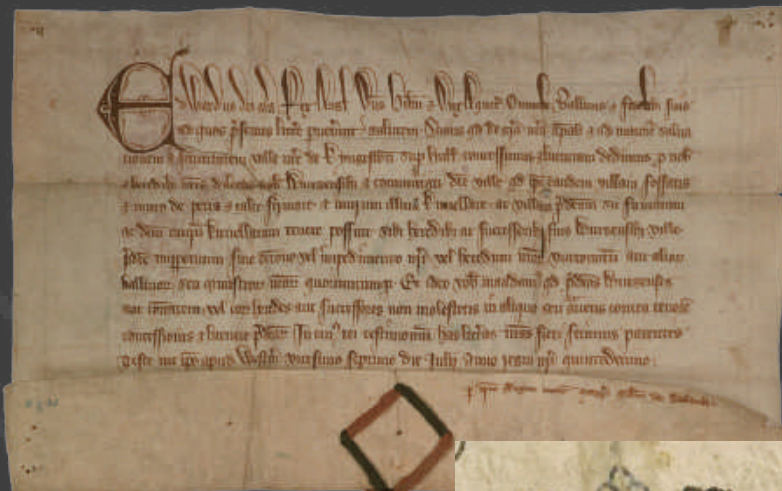 Edwardus dei gra Rex Angl Dns Hibn & Dux Aquit Omnib Ballivis & fidelib suis
ad quos psentes littere pervenerint salutem Sciatis qd de gra nra & ad salva
cionem & securitatem ville nre de Kyngeston sup Hull concessimus & licenciam dedimus p nob
& heredib nris dilectis nob Burgensib & comunitati dce ville qd ipi eandem villam fossato
& muro de petra & calce firmare & murum illum kirnellare ac villam pdcam sic firmatam
ac dcm murum kirnellatum tenere possint sibi heredib ac successorib suis Burgensib ville
pdce imperpetuum sine occone vel impedimento nri vel heredum nror vicecomitum aut alior
ballivor seu ministror nror quorumcumq Et ideo vob mandam qd pdcos Burgenses
aut vel eor heredes aut successores non molestetis in aliquo seu gravetis contra tenorem
concessionis & licencie pdcar In cui rei testimonium has literas nras fieri fecimus patentes
Teste me ipo apud Westm vicesimo septimo die Julij Anno regni nri quintodecimo